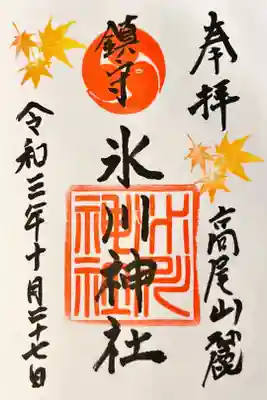 奉拝
高尾山麓
鎮守
氷川神社
氷川神社
令和三年十月二十七日